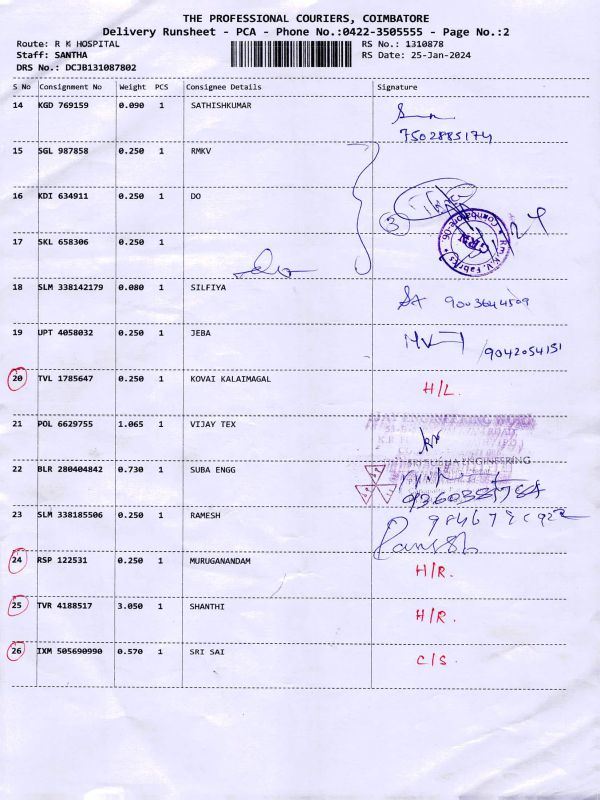 THE PROFESSIONAL COURIERS, COIMBATORE
Delivery Runsheet - PCA - Phone No.:0422-3505555 - Page No.:2
Route: R K HOSPITAL RS No.: 1310878
Staff: SANTHA RS Date: 25-Jan-2024
DRS No.: DCJB131087802
S No Consignment No Weight PCS Consignee Details Signature
14 KGD 769159 0.090 1 SATHISHKUMAR
7502885174
15 SGL 987858 0.250 1 RMKV
16 KDI 634911 0.250 1 DO
3
17 SKL 658306 0.250 1
R.m.K.V. Fabrics * Coimbatore-06. *
GRN
18 SLM 338142179 0.080 1 SILFIYA
SA 9003644509
19 UPT 4058032 0.250 1 JEBA
/9042054151
20 TVL 1785647 0.250 1 KOVAI KALAIMAGAL H/L.
21 POL 6629755 1.065 1 VIJAY TEX
ENGINEERING
22 BLR 280404842 0.730 1 SUBA ENGG
23 SLM 338185506 0.250 1 RAMESH
24 RSP 122531 0.250 1 MURUGANANDAM H/R.
25 TVR 4188517 3.050 1 SHANTHI H/R.
26 IXM 505690990 0.570 1 SRI SAI C/S.